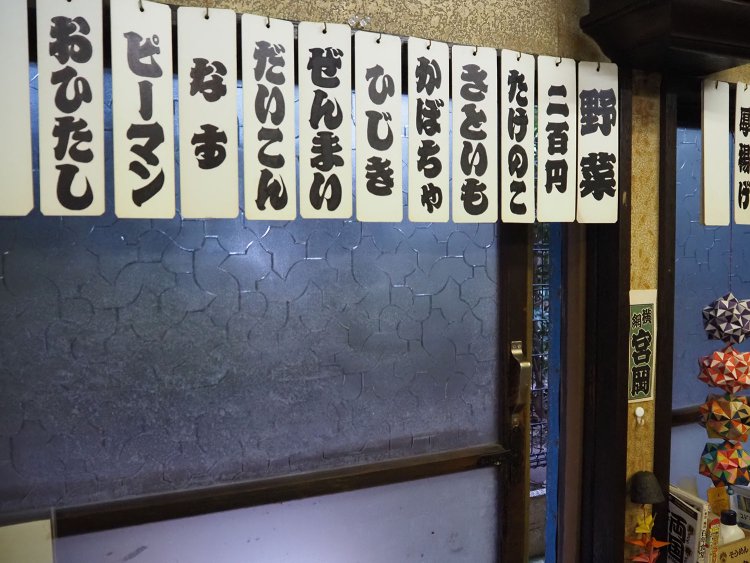 厚揚げ
野菜
二百円
たけのこ
さといも
かぼちゃ
ひじき
ぜんまい
だいこん
なす
ピーマン
おひたし
横綱
宮岡
両国
そうめん